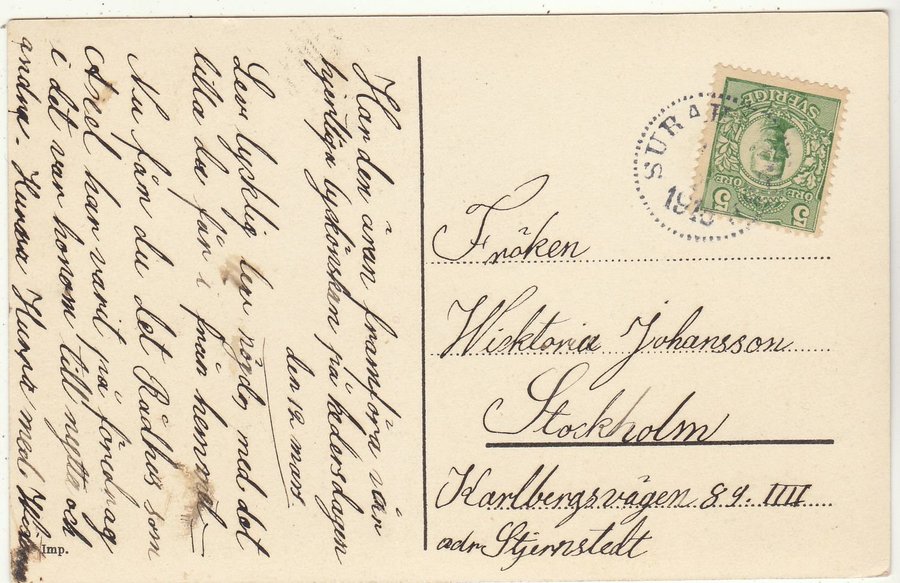 Har den äran framföra vår
hjertliga lyckönskan på hedersdagen
den 12 mars.
Lev lycklig lev nöjder med det
lilla du får i från hemmet
Nu får du det Rådhus som
Axel har varit på föredrag
i det var honom till nytta och
andra. Hurra Hurra med
Imp.
SURAH
1915
SVERIGE
5 ÖRE ÖRE 5
Fröken
Wicktoria Johansson
Stockholm
Karlbergsvägen 89. IIII
adr Stjernstedt